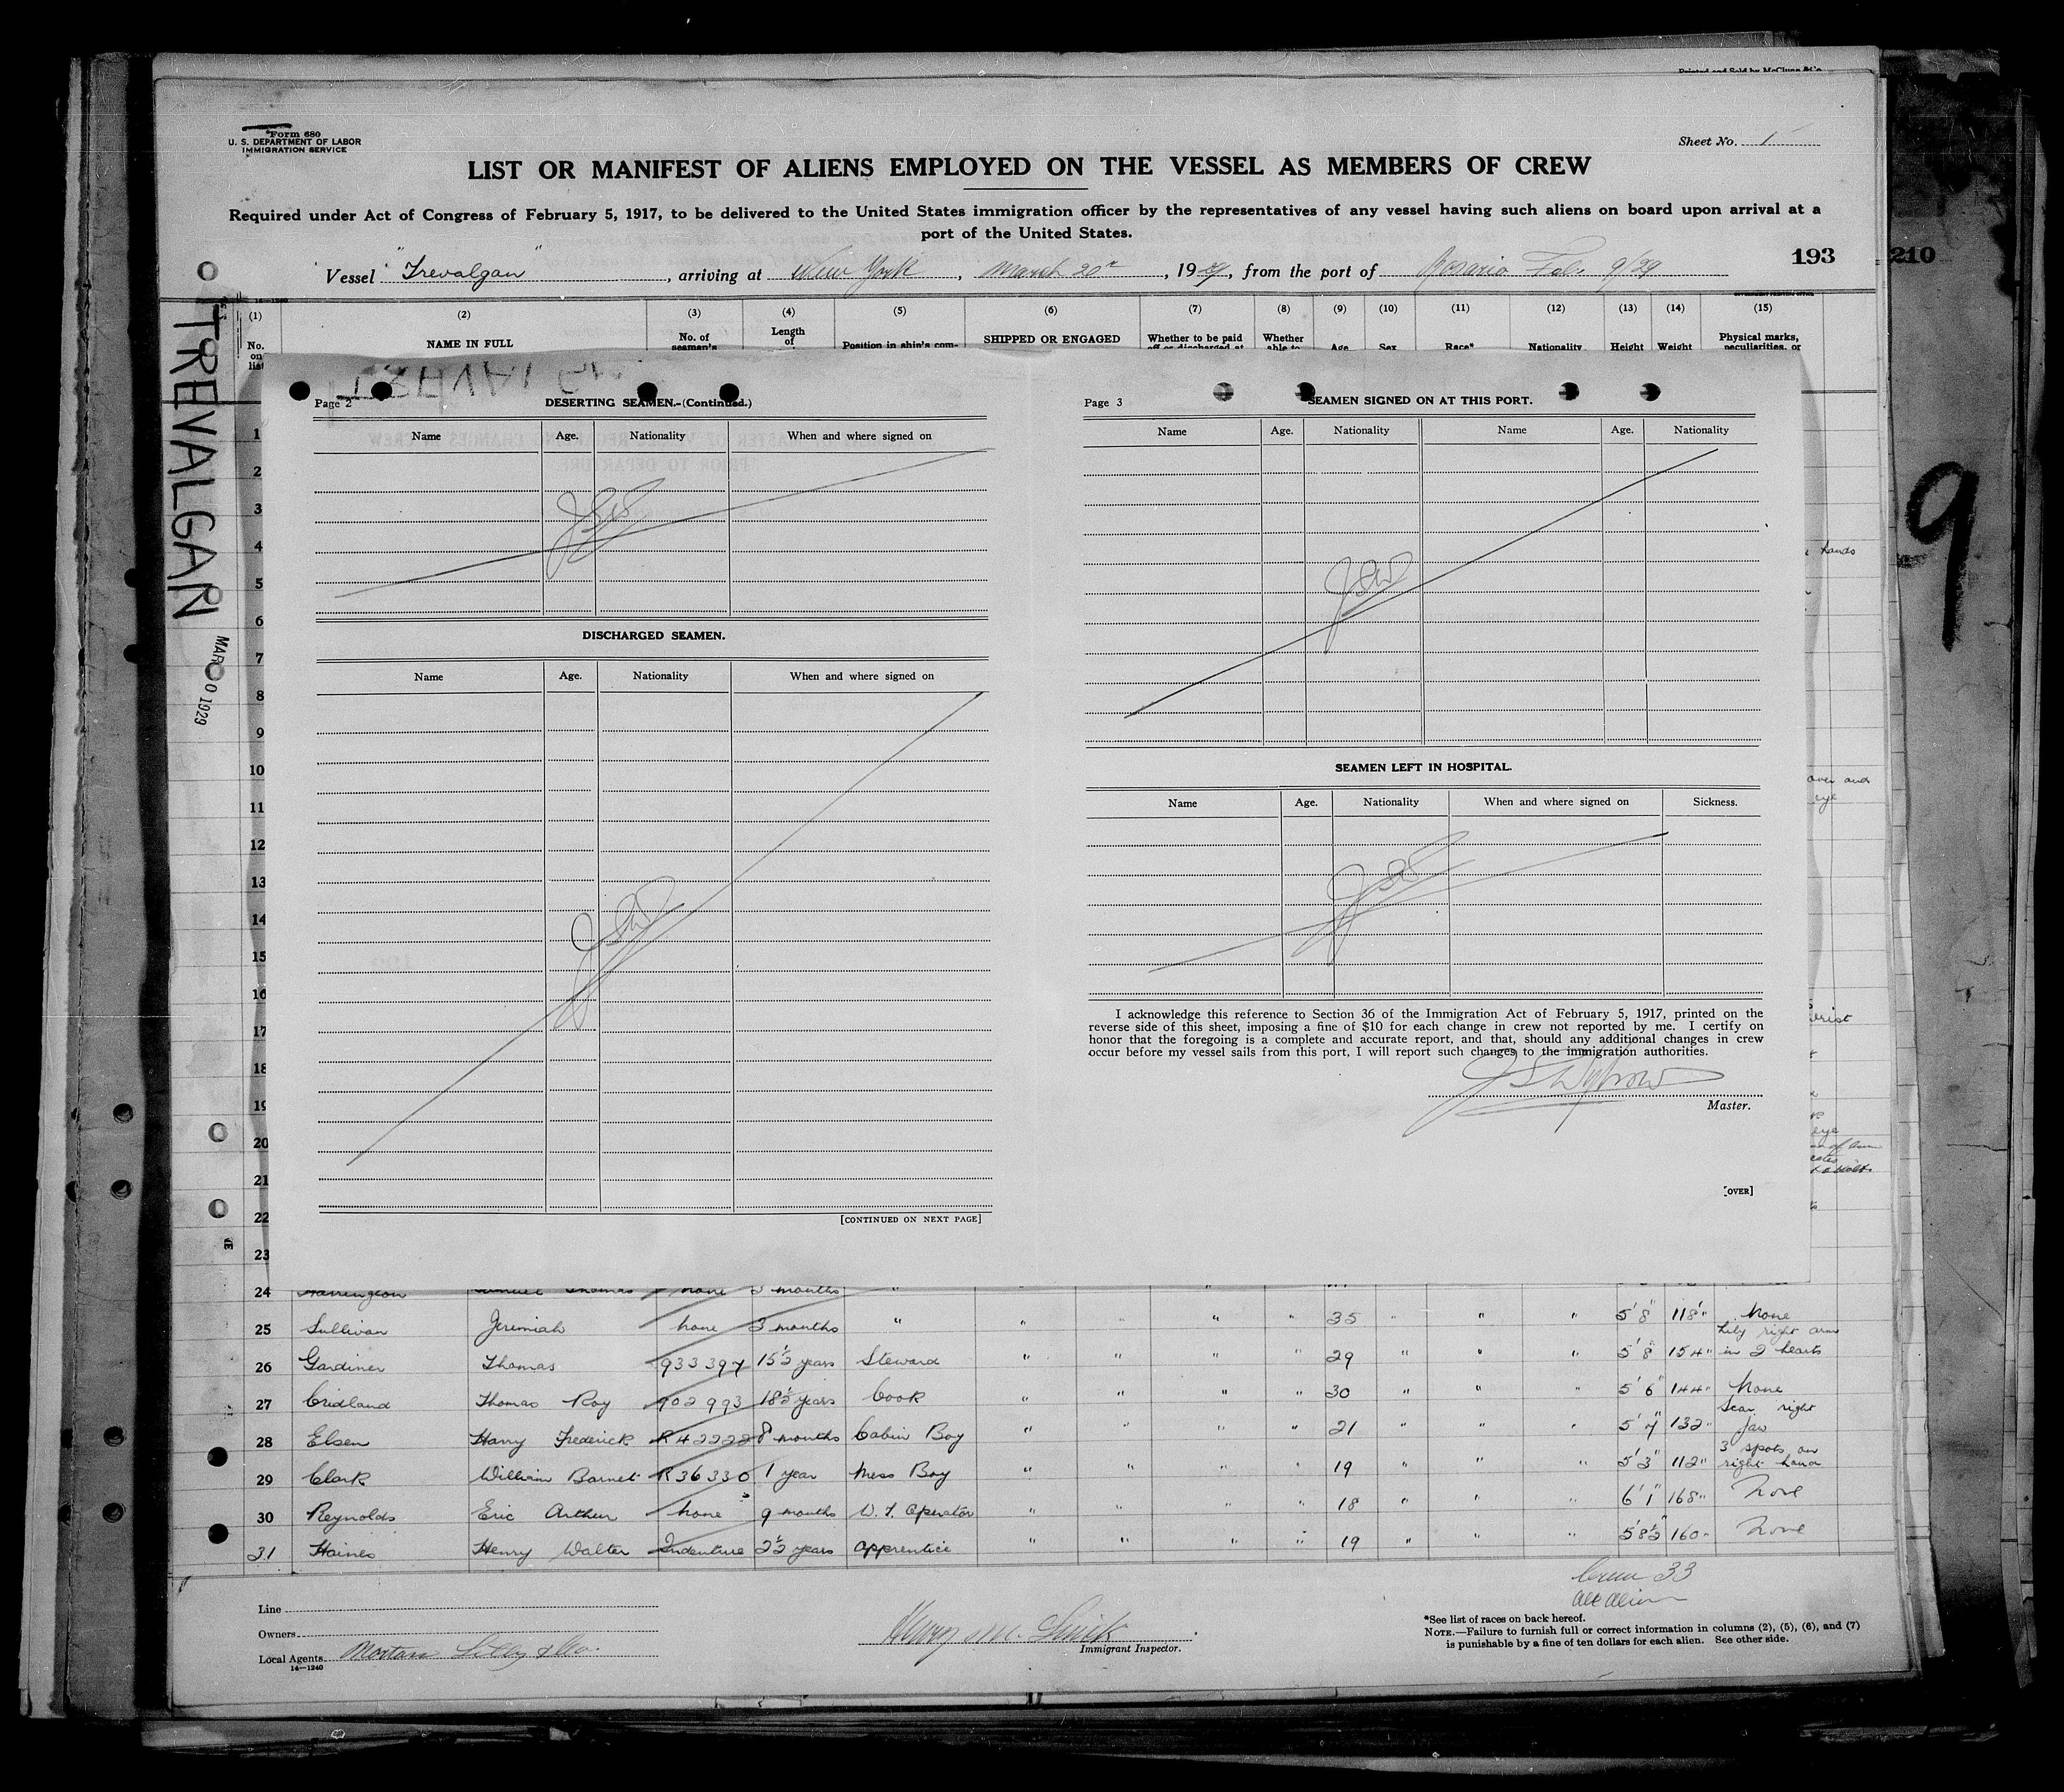 Printed and Sold by McClung
Form 680
U. S. DEPARTMENT OF LABOR
IMMIGRATION SERVICE
Sheet No. 1
LIST OR MANIFEST OF ALIENS EMPLOYED ON THE VESSEL AS MEMBERS OF CREW
Required under Act of Congress of February 5, 1917, to be delivered to the United States immigration officer by the representatives of any vessel having such aliens on board upon arrival at a
port of the United States.
Vessel "Trevalgan", arriving at New York, March 20, 1929, from the port of Rosario Feb. 9/29
193
210
TREVALGAN
MAR 0 1929
9
(1) (2) (3) (4) (5) (6) (7) (8) (9) (10) (11) (12) (13) (14) (15)
No. on list NAME IN FULL No. of seaman's Length of Position in ship's com- SHIPPED OR ENGAGED Whether to be paid off or discharged at Whether able to Age Sex Race* Nationality Height Weight Physical marks, peculiarities, or
Page 2 DESERTING SEAMEN.-(Continued.)
Name Age. Nationality When and where signed on
DISCHARGED SEAMEN.
Name Age. Nationality When and where signed on
[CONTINUED ON NEXT PAGE]
Page 3 SEAMEN SIGNED ON AT THIS PORT.
Name Age. Nationality Name Age. Nationality
SEAMEN LEFT IN HOSPITAL.
Name Age. Nationality When and where signed on Sickness.
I acknowledge this reference to Section 36 of the Immigration Act of February 5, 1917, printed on the
reverse side of this sheet, imposing a fine of $10 for each change in crew not reported by me. I certify on
honor that the foregoing is a complete and accurate report, and that, should any additional changes in crew
occur before my vessel sails from this port, I will report such changes to the immigration authorities.
Master.
[OVER]
1
2
3
4
5
6
7
8
9
10
11
12
13
14
15
16
17
18
19
20
21
22
23
hands
over and
eye
eye
24 Harrington Thomas none 3 months "
25 Sullivan Jeremiah none 3 months " " " " " 35 " " " 5'8" 118" None
26 Gardiner Thomas 933397 15½ years Steward " " " " 29 " " " 5'8" 154" Lily right arm in 2 hearts
27 Cridland Thomas Roy 902993 18½ years Cook " " " " 30 " " " 5'6" 144" None
28 Elsen Harry Frederick R42222 8 months Cabin Boy " " " " 21 " " " 5'7" 132" Scar right Jaw
29 Clark William Barnet R36330 1 year Mess Boy " " " " 19 " " " 5'3" 112" 3 spots on right hand
30 Reynolds Eric Arthur none 9 months W. T. Operator " " " " 18 " " " 6'1" 168" None
31 Haines Henry Walter Indenture 2½ years Apprentice " " " " 19 " " " 5'8½" 160" None
Crew 33
All Alien
Line
Owners
Local Agents
14—1240
Immigrant Inspector.
*See list of races on back hereof.
NOTE.—Failure to furnish full or correct information in columns (2), (5), (6), and (7)
is punishable by a fine of ten dollars for each alien. See other side.